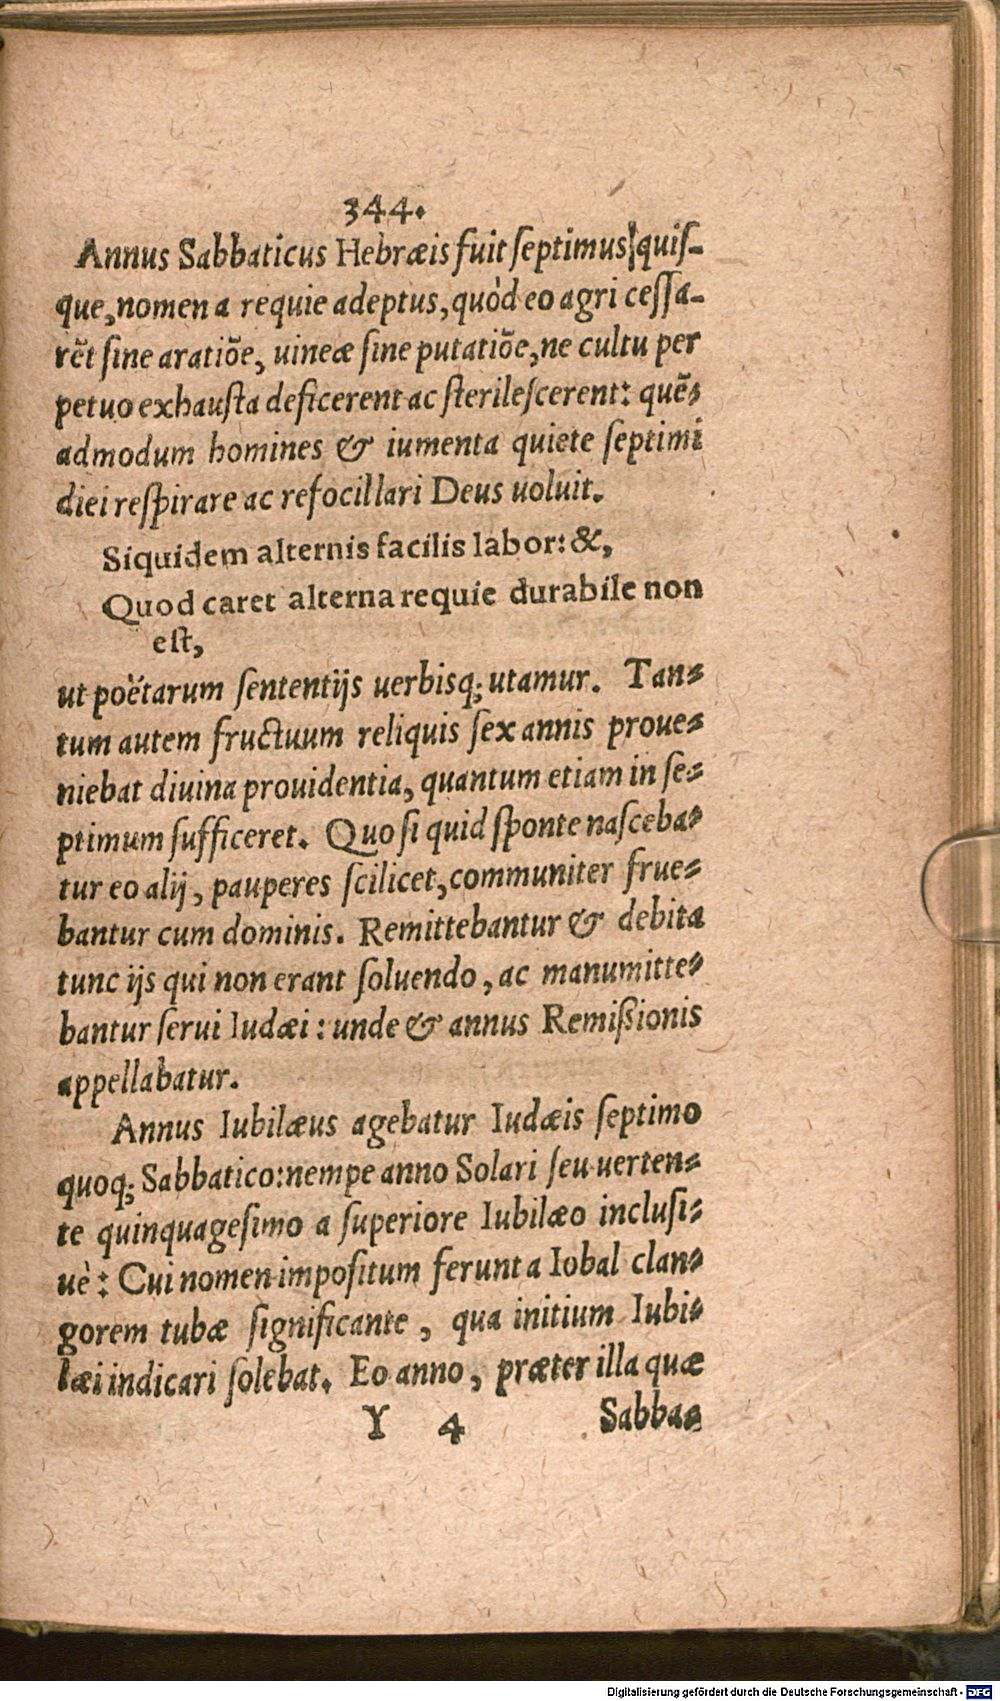 344.
Annus Sabbaticus Hebræis fuit septimus quis-
que, nomen a requie adeptus, quòd eo agri cessa-
rẽt sine aratiõe, uineæ sine putatiõe, ne cultu per
petuo exhausta deficerent ac sterilescerent: quẽ-
admodum homines & iumenta quiete septimi
diei respirare ac refocillari Deus uoluit.
Siquidem alternis facilis labor: &,
Quod caret alterna requie durabile non
est,
ut poëtarum sententijs uerbisq; utamur. Tan-
tum autem fructuum reliquis sex annis proue-
niebat diuina prouidentia, quantum etiam in se-
ptimum sufficeret. Quo si quid sponte nasceba-
tur eo alij, pauperes scilicet, communiter frue-
bantur cum dominis. Remittebantur & debita
tunc ijs qui non erant soluendo, ac manumitte-
bantur serui Iudæi: unde & annus Remißionis
appellabatur.
Annus Iubilæus agebatur Iudæis septimo
quoq; Sabbatico: nempe anno Solari seu uerten-
te quinquagesimo a superiore Iubilæo inclusi-
uè: Cui nomen impositum ferunt a Iobal clan-
gorem tubæ significante, qua initium Iubi-
læi indicari solebat. Eo anno, præter illa quæ
Y 4 Sabba-
Digitalisierung gefördert durch die Deutsche Forschungsgemeinschaft - DFG